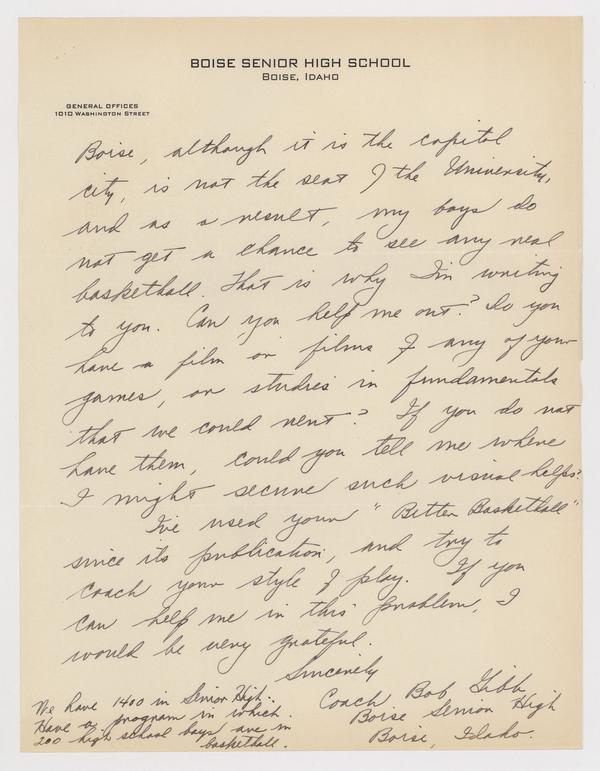 BOISE SENIOR HIGH SCHOOL
BOISE, IDAHO
GENERAL OFFICES
1010 WASHINGTON STREET
Boise, although it is the capitol
city, is not the seat of the University,
and as a result, my boys do
not get a chance to see any real
basketball. That is why I'm writing
to you. Can you help me out? Do you
have a film or films of any of your
games, or studies in fundamentals
that we could rent? If you do not
have them, could you tell me where
I might secure such visual helps?
I've used your "Better Basketball"
since its publication, and try to
coach your style of play. If you
can help me in this problem, I
would be very grateful.
Sincerely
Coach Bob Gibb
Boise Senior High
Boise, Idaho.
We have 1400 in Senior High.
Have a program in which
200 high school boys are in
basketball.